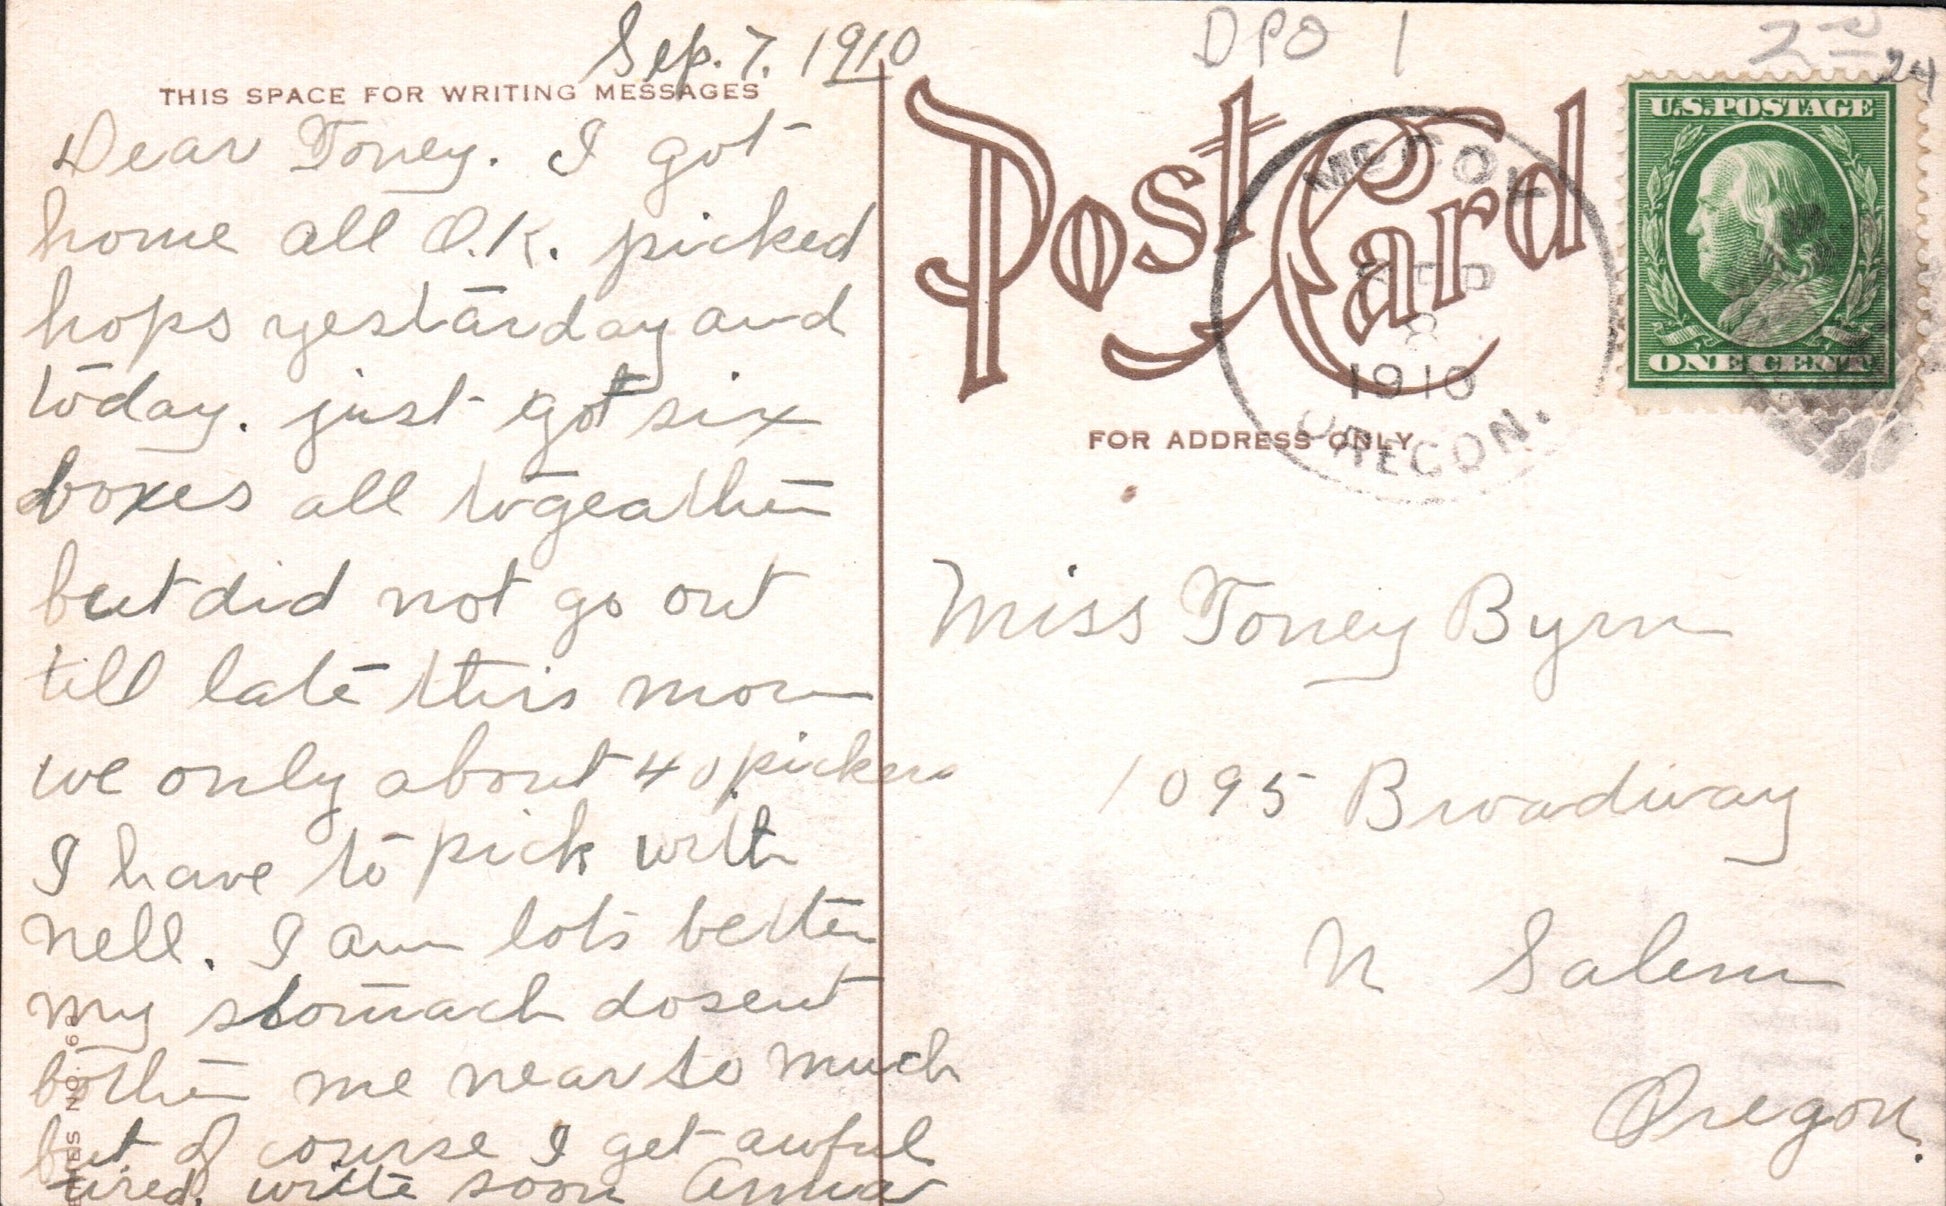 Sep. 7. 1910
THIS SPACE FOR WRITING MESSAGES
Dear Toney. I got
home all O.K. picked
hops yestarday and
today. just got six
boxes all togeather
but did not go out
till late this morn
we only about 40 pickers
I have to pick with
Nell. I am lots better
my stomach dosent
bother me near to much
but of course I get awful
tired. write soon Anna
SERIES NO. 69
DPO 1
24
Post Card
U.S. POSTAGE
ONE CENT
McCOY
SEP
8
1910
OREGON.
FOR ADDRESS ONLY
Miss Toney Byrn
1095 Broadway
N Salem
Oregon.